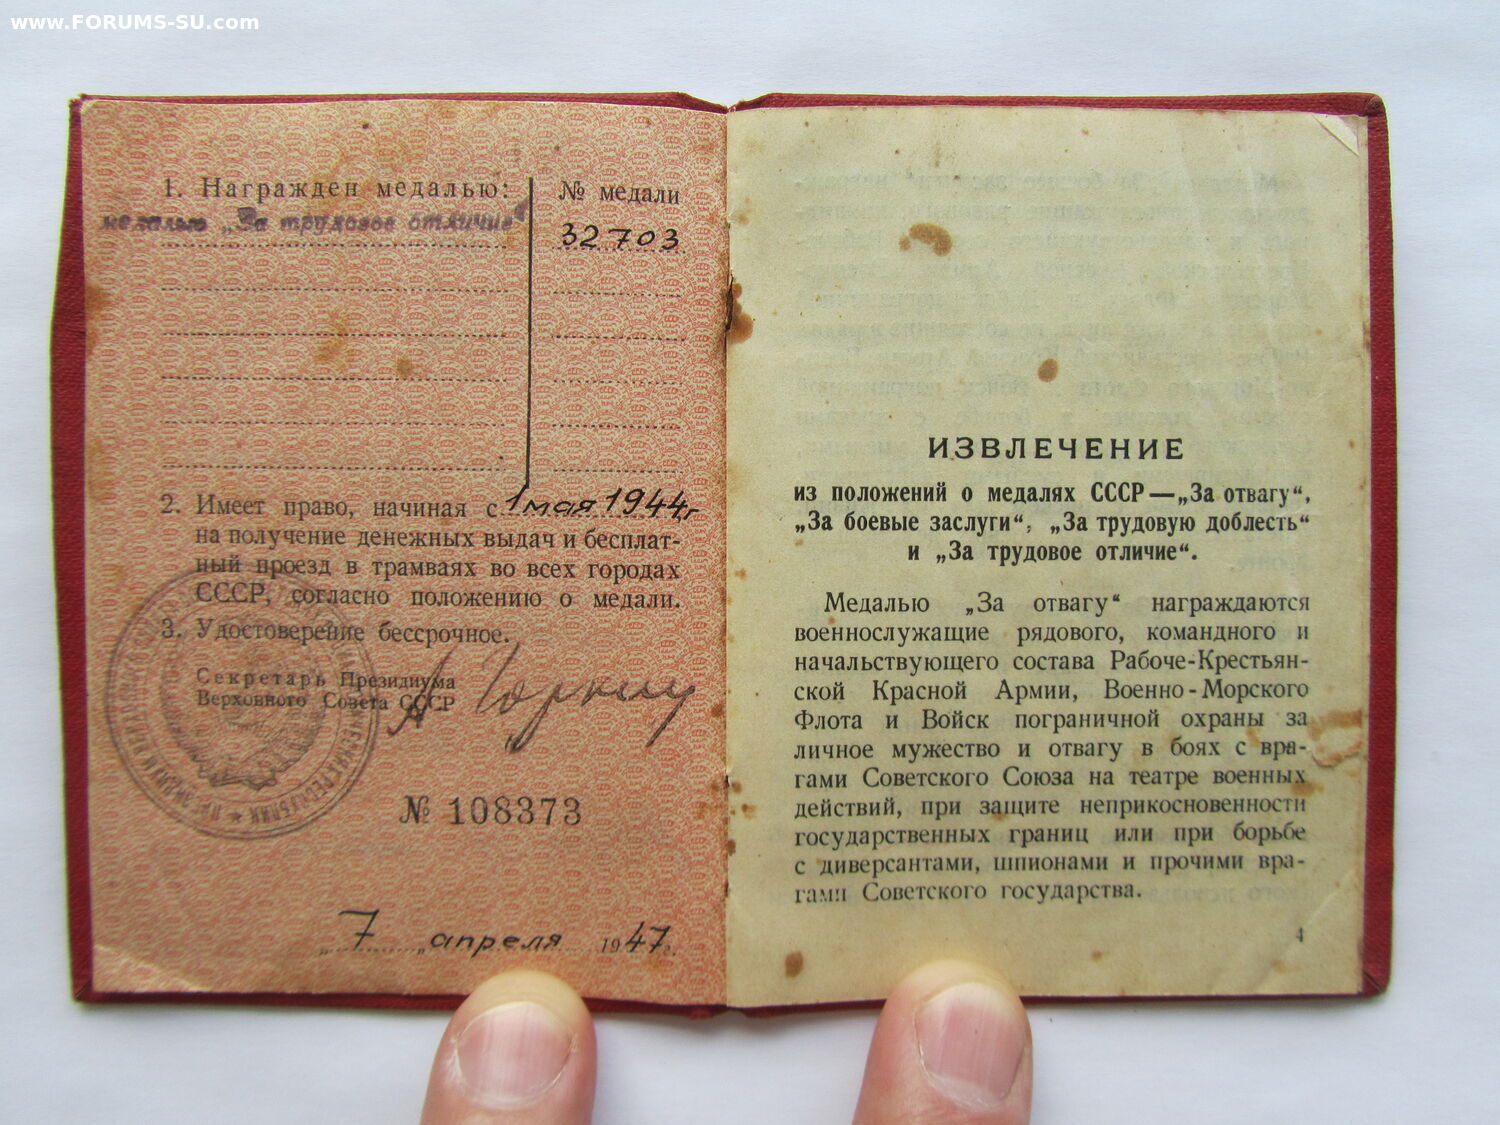 www.FORUMS-SU.com
1. Награжден медалью:
№ медали
медалью „За трудовое отличие“
32703
2. Имеет право, начиная с 1 мая 1944 г
на получение денежных выдач и бесплат-
ный проезд в трамваях во всех городах
СССР, согласно положению о медали.
3. Удостоверение бессрочное.
Секретарь Президиума
Верховного Совета СССР
А Горкин
№ 108373
„ 7 „ апреля 1947 г.
ИЗВЛЕЧЕНИЕ
из положений о медалях СССР—„За отвагу“,
„За боевые заслуги“, „За трудовую доблесть“
и „За трудовое отличие“.
Медалью „За отвагу“ награждаются
военнослужащие рядового, командного и
начальствующего состава Рабоче-Крестьян-
ской Красной Армии, Военно-Морского
Флота и Войск пограничной охраны за
личное мужество и отвагу в боях с вра-
гами Советского Союза на театре военных
действий, при защите неприкосновенности
государственных границ или при борьбе
с диверсантами, шпионами и прочими вра-
гами Советского государства.
4